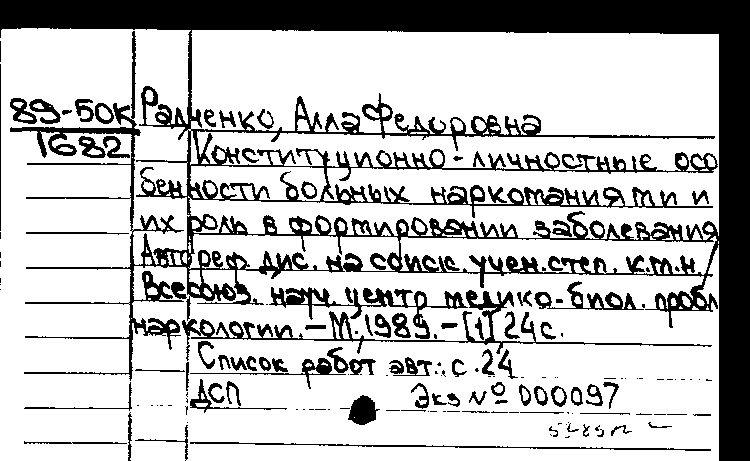 89-50К
1682
Радченко, Алла Федоровна
Конституционно-личностные осо
бенности больных наркоманиями и
их роль в формировании заболевания
Автореф. дис. на соиск. учен. степ. к.м.н. /
Всесоюз. науч. центр медико-биол. пробл
наркологии. - М., 1989. - [1], 24 с.
Список работ авт.: с. 24
ДСП Экз № 000097